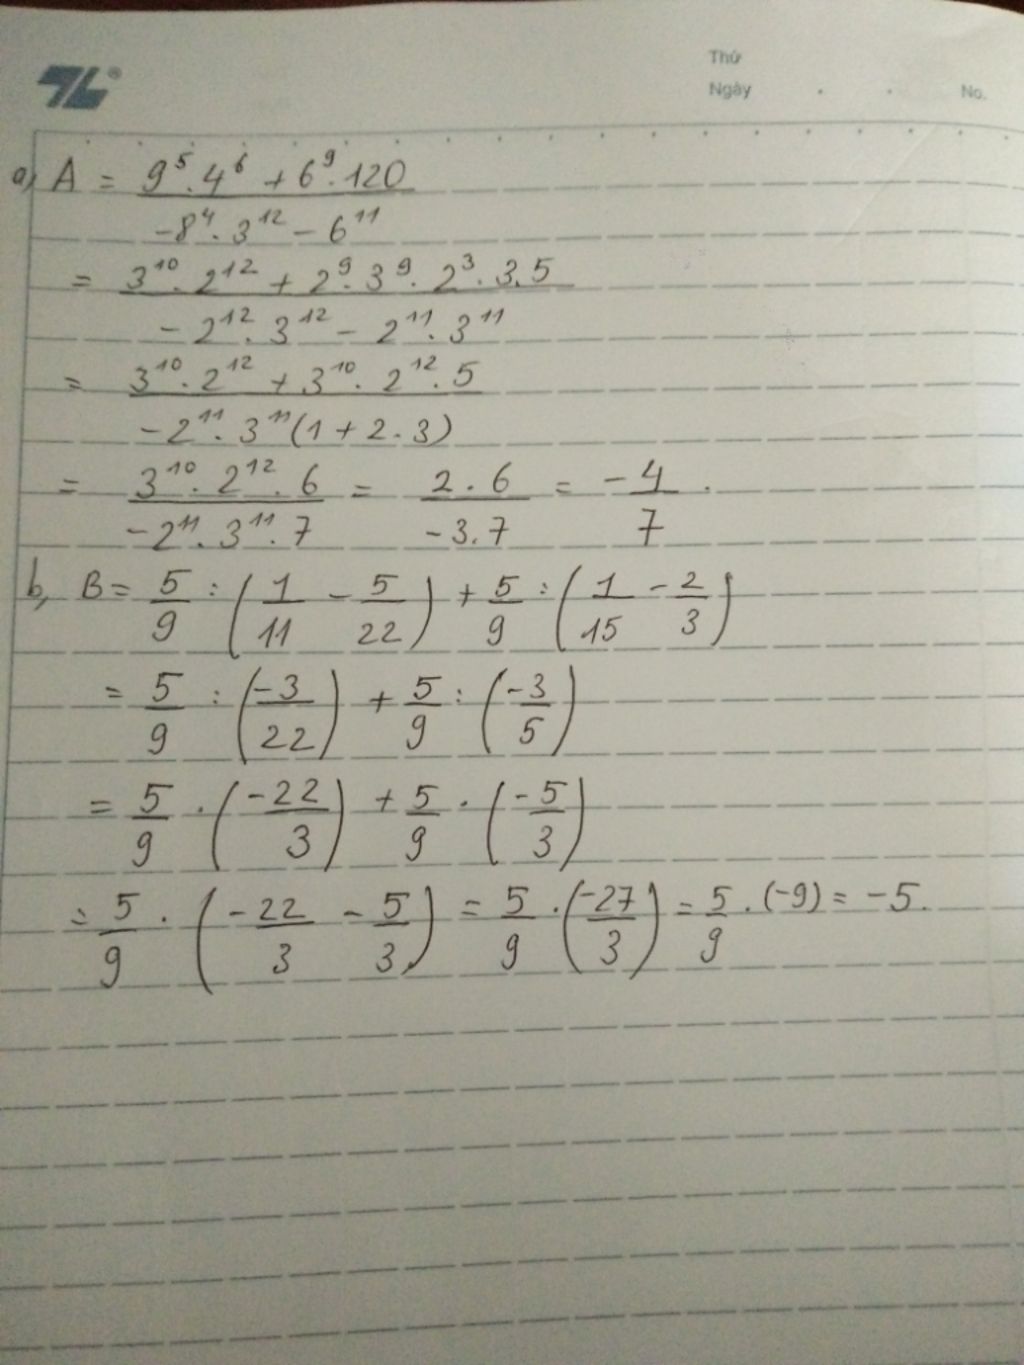 Thứ
Ngày . . No.
a) A = (9⁵.4⁶ + 6⁹.120)/(-8⁴.3¹² - 6¹¹)
= (3¹⁰.2¹² + 2⁹.3⁹.2³.3.5)/(-2¹².3¹² - 2¹¹.3¹¹)
= (3¹⁰.2¹² + 3¹⁰.2¹².5)/(-2¹¹.3¹¹(1+2.3))
= (3¹⁰.2¹².6)/(-2¹¹.3¹¹.7) = (2.6)/(-3.7) = -4/7.
b, B = 5/9 : (1/11 - 5/22) + 5/9 : (1/15 - 2/3)
= 5/9 : (-3/22) + 5/9 : (-3/5)
= 5/9 . (-22/3) + 5/9 . (-5/3)
= 5/9 . (-22/3 - 5/3) = 5/9 . (-27/3) = 5/9 . (-9) = -5.